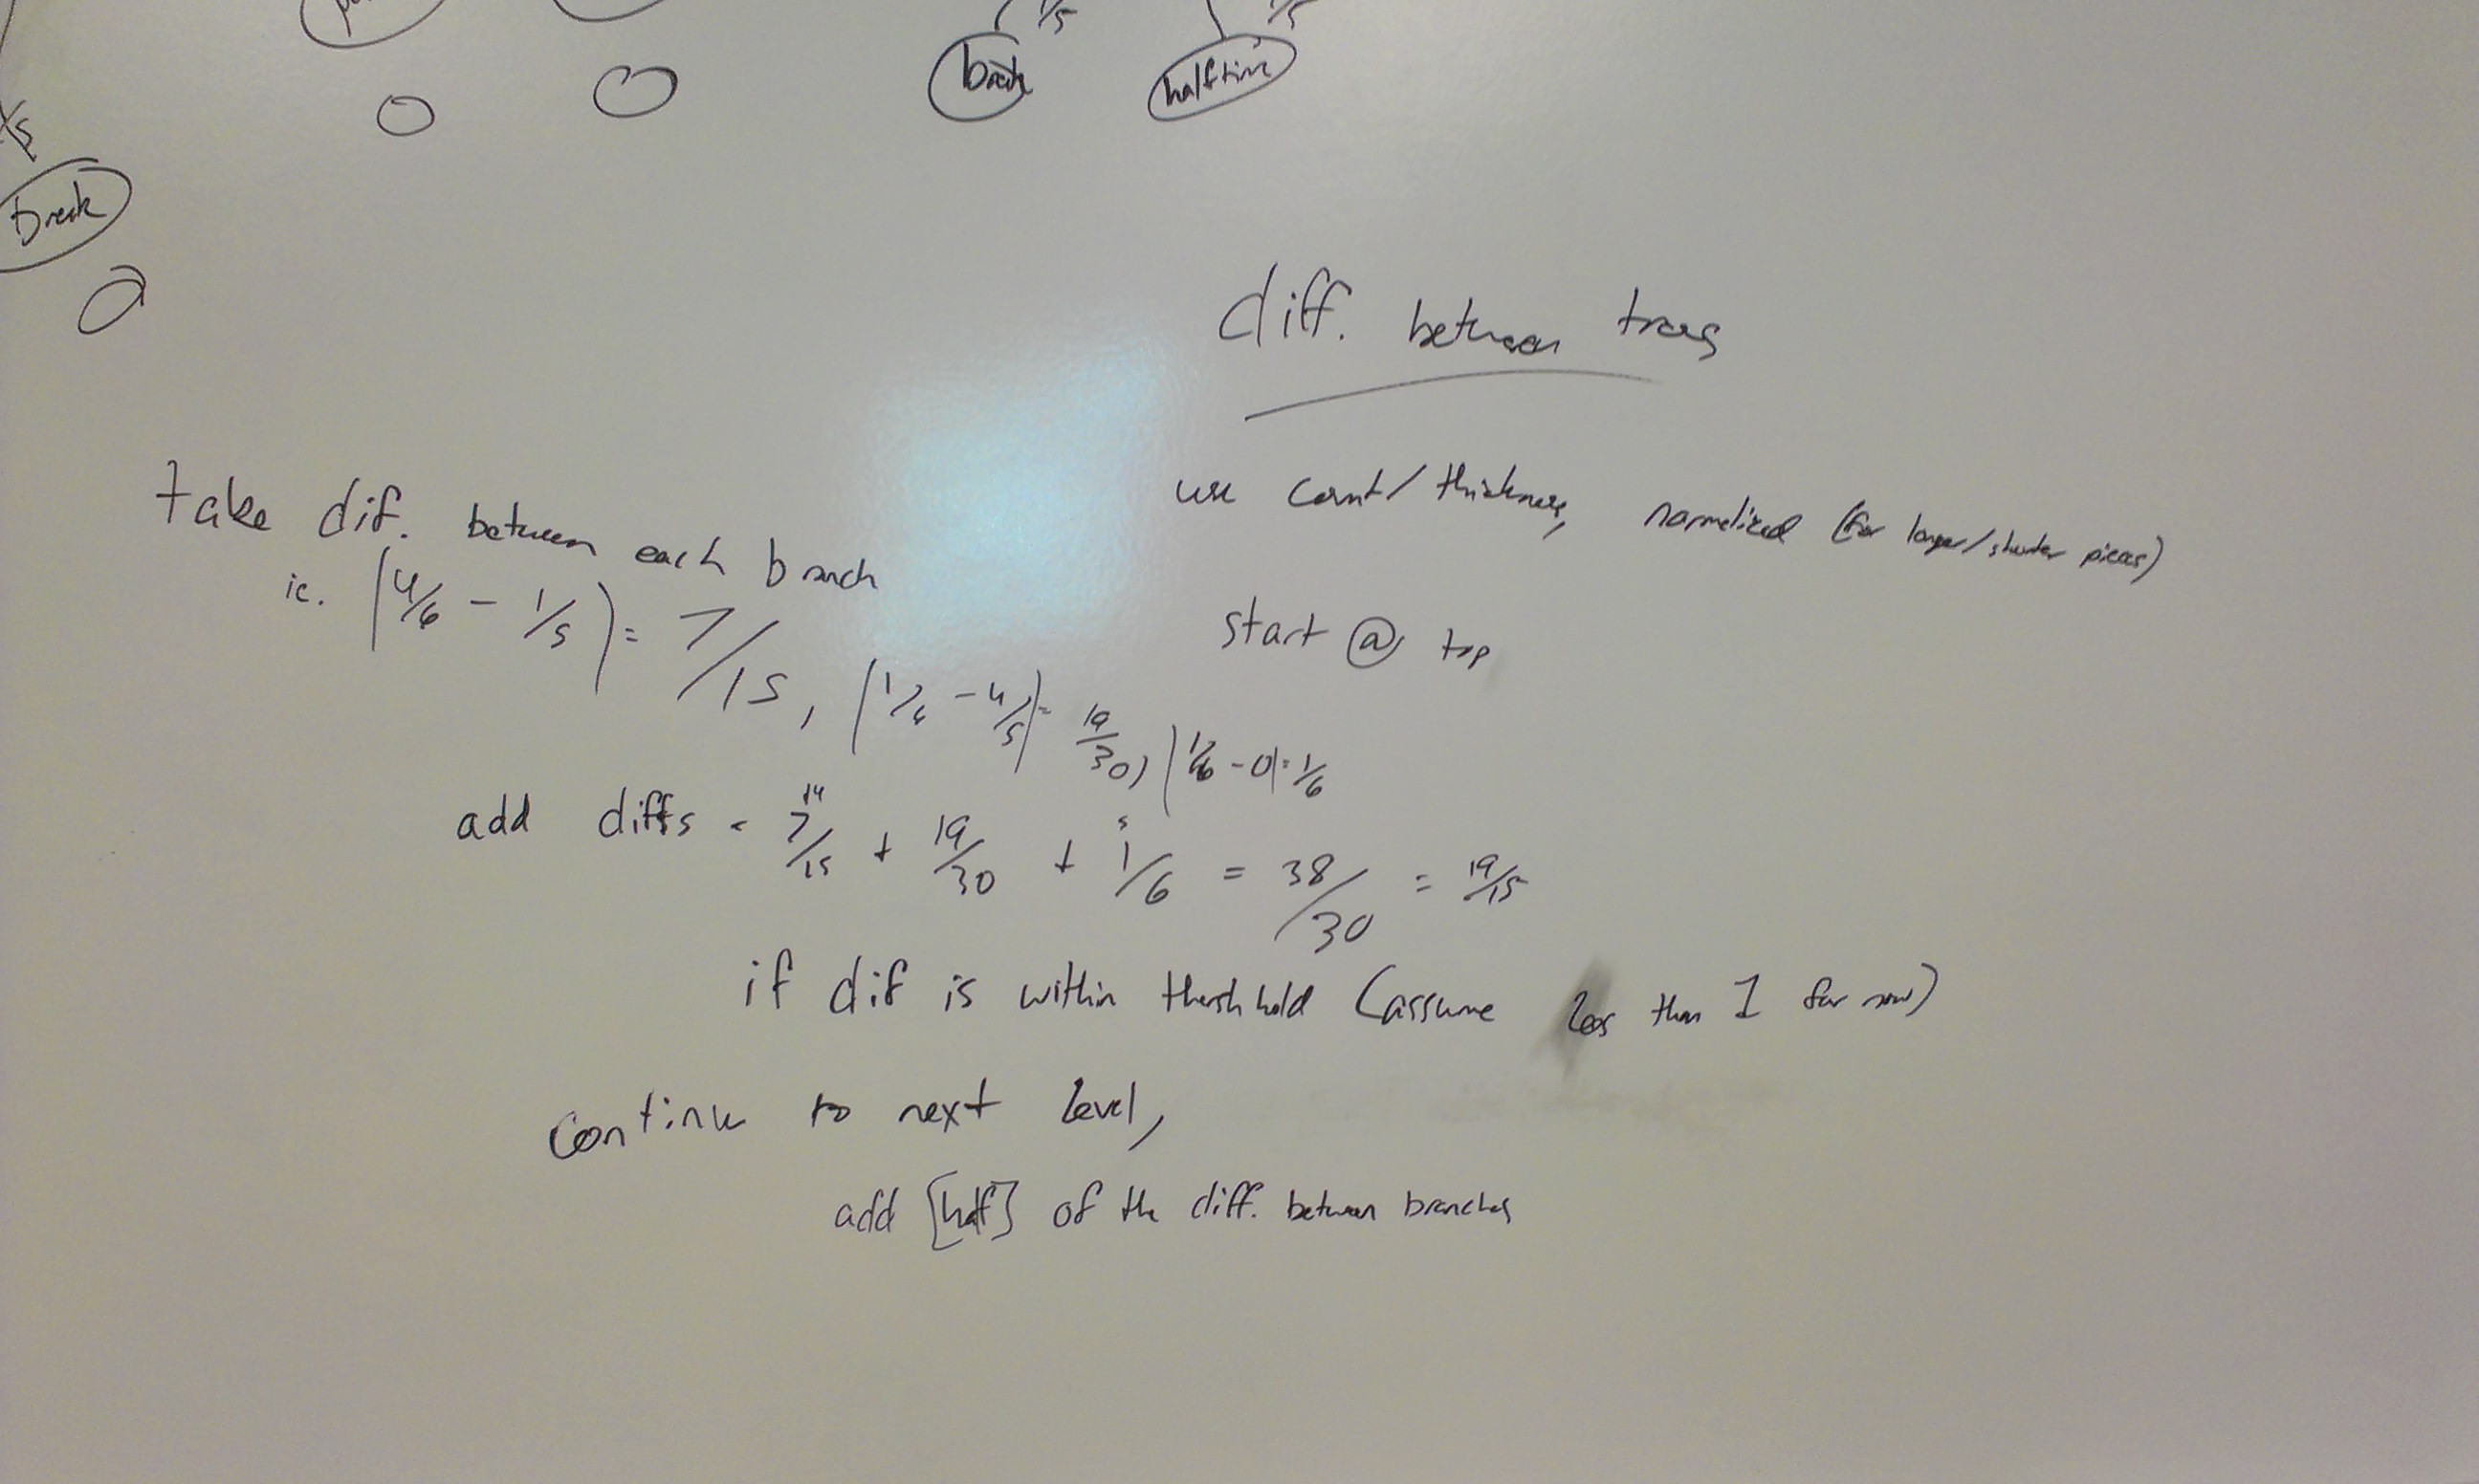 1/5 1/5
break halftime
1/5
break
diff. between trees
use count/thickness, normalized (for longer/shorter pieces)
start @ top
take dif. between each branch
ie. |4/6 - 1/5| = 7/15, |1/6 - 4/5| = 19/30, |1/6 - 0| = 1/6
14 5
add diffs = 7/15 + 19/30 + 1/6 = 38/30 = 19/15
if dif is within thershhold (assume less than 1 for now)
continue to next level,
add [half] of the diff. between branches